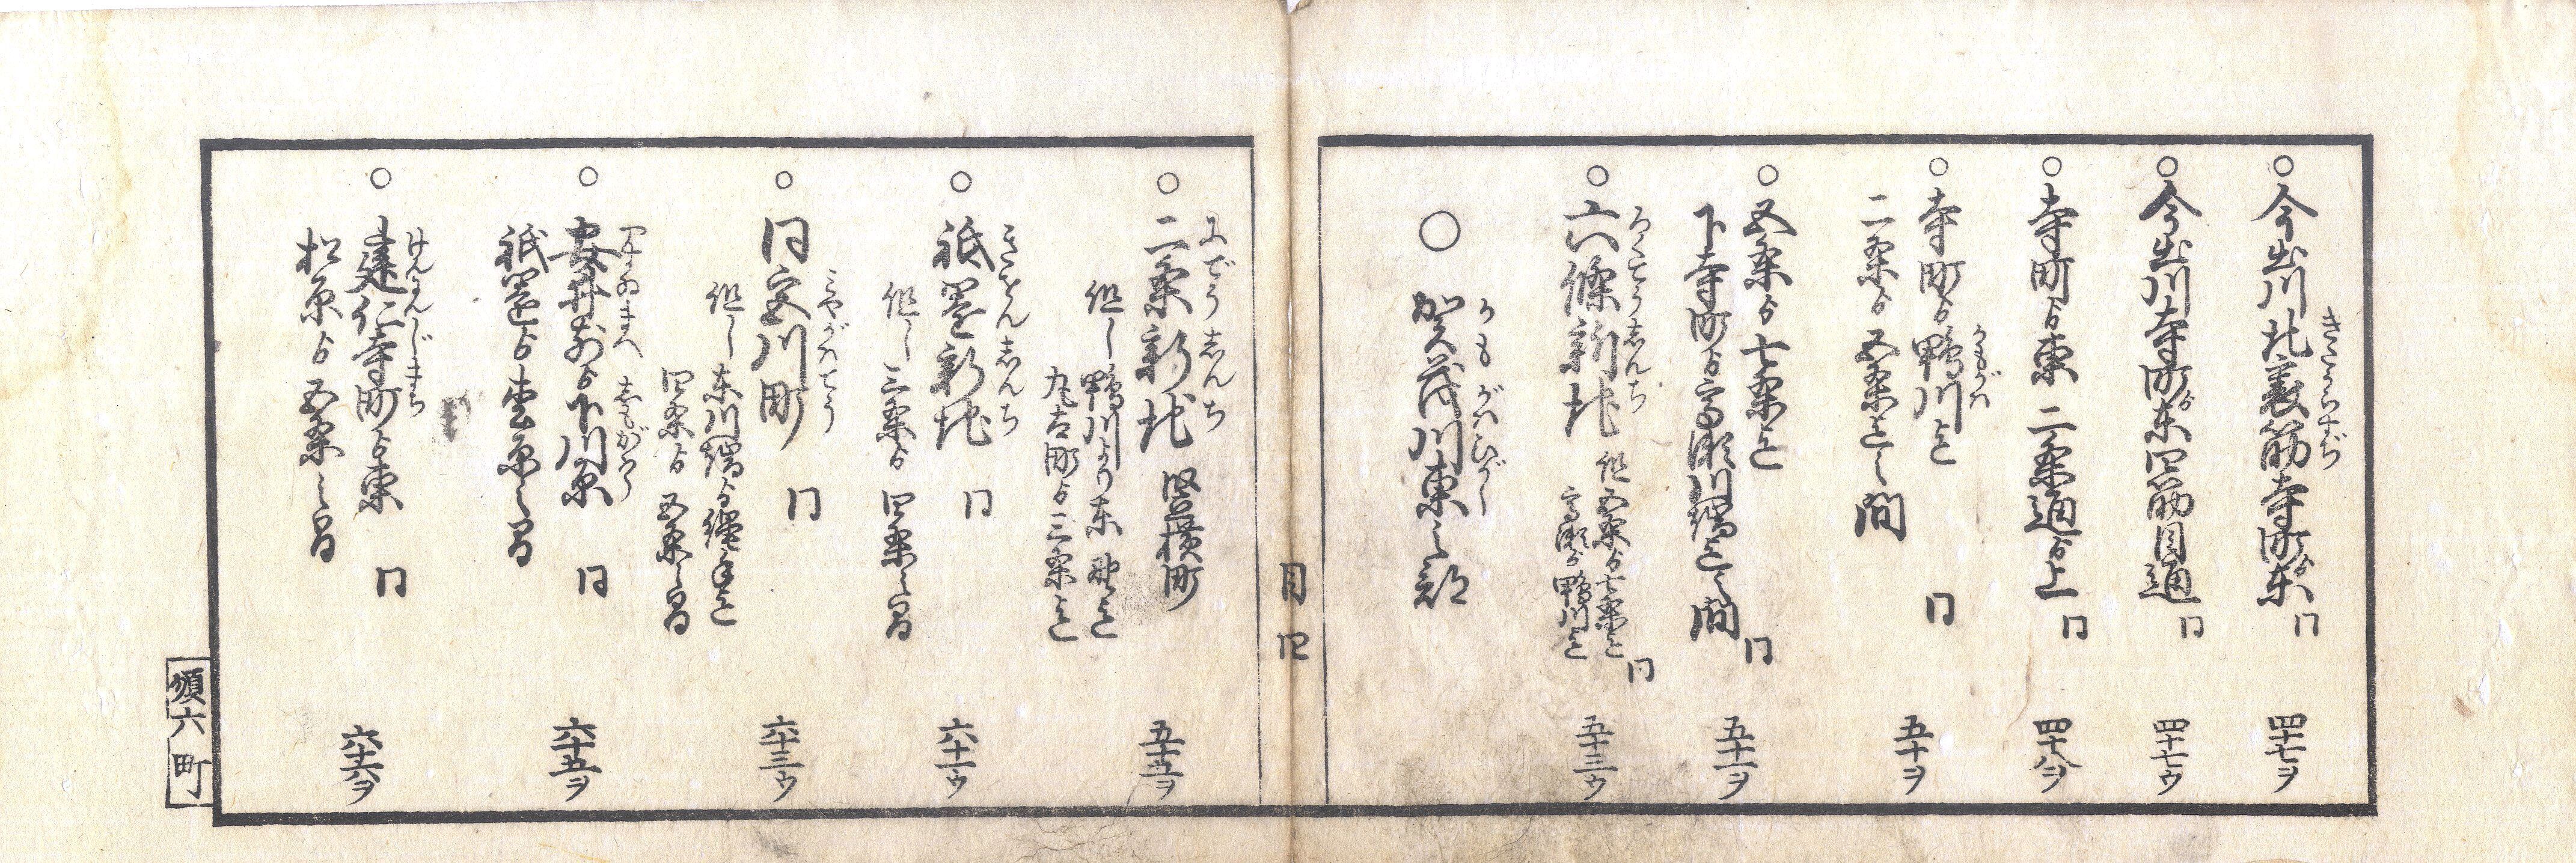 ○今出川北裏筋寺町ゟ東 同 四十七ヲ
きたうらすぢ
○今出川寺町ゟ東四筋目通 同 四十七ウ
○寺町ゟ東二条通ゟ上 同 四十八ヲ
○寺町ゟ鴨川迄
かもがは
二条ゟ五条迄之間 同 五十ヲ
○五条ゟ七条迄
下寺町ゟ高瀬川端迄之間 同 五十二ヲ
○六條新地
ろくでうしんち
但五条ゟ七条迄
高瀬ゟ鴨川迄 同 五十三ウ
○賀茂川東之部
かもがはひがし
目四
○二条新地 竪横町 五十五ヲ
にでうしんち
但し鴨川より東
丸太町ゟ三条迄
○祇園新地 同 六十一ウ
ぎをんしんち
但し三条ゟ四条之間
○同宮川町 同 六十三ウ
みやがはてう
但し東川端ゟ縄手迄
四条ゟ五条之間
○安井前ゟ下川原 同 六十五ヲ
やすゐまへ しもがはら
祇園ゟ松原之間
○建仁寺町ゟ東 同 六十六ヲ
けんにんじまち
松原ゟ五条之間
類六 町